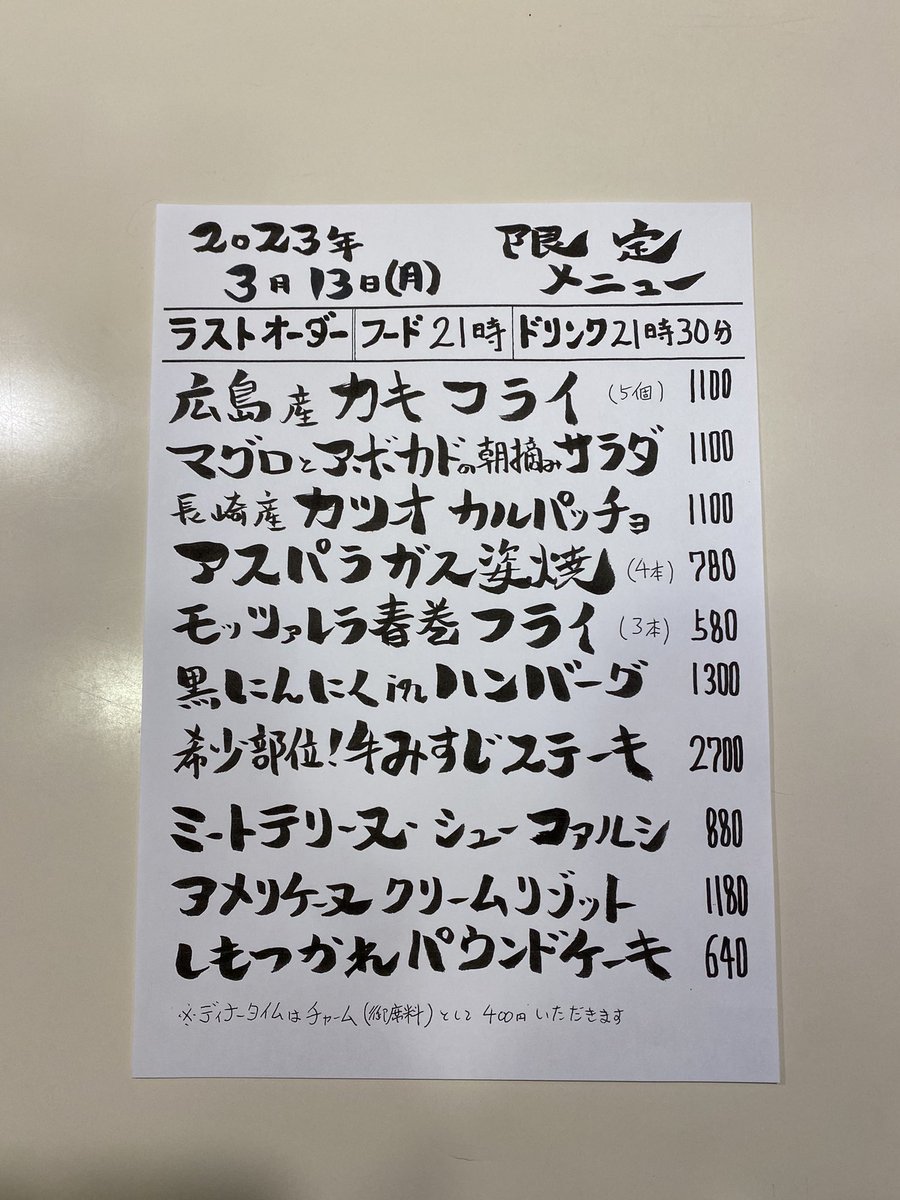 2023年 限定
3月13日(月) メニュー
ラストオーダー フード21時 ドリンク21時30分
広島産カキフライ (5個) 1100
マグロとアボカドの朝摘みサラダ 1100
長崎産カツオカルパッチョ 1100
アスパラガス姿焼 (4本) 780
モッツァレラ春巻フライ (3本) 580
黒にんにくinハンバーグ 1300
希少部位!牛みすじステーキ 2700
ミートテリーヌ・シューファルシ 880
アメリケーヌクリームリゾット 1180
しもつかれパウンドケーキ 640
※ディナータイムはチャーム(御席料)として400円いただきます